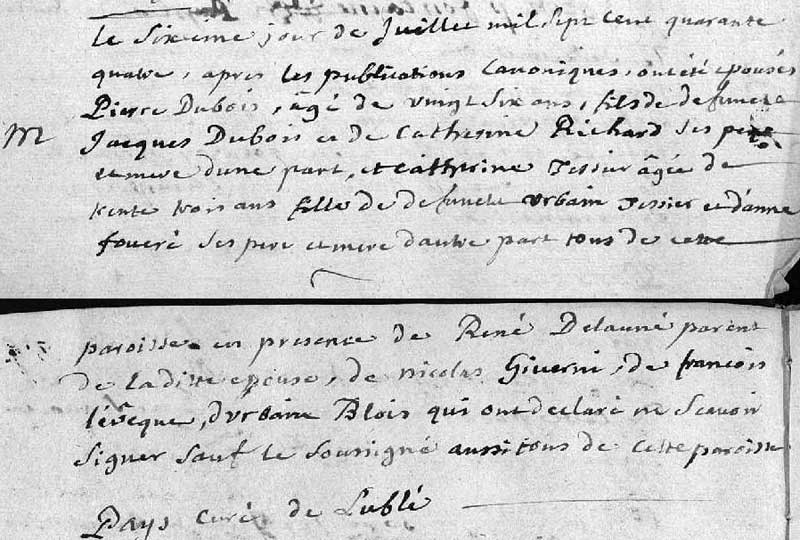 le sixeme jour de Juillet mil sept cent quarante
quatre, apres les publications canoniques, ont été epousés
Pierre Dubois, âgé de vingt six ans, fils de defuncts
M Jacques Dubois et de Catherine Richard ses pere
et mere dune part, et catherine Tessier âgée de
trente trois ans fille de defuncts urbain Tessier et d'anne
foueré ses pere et mere dautre part tous de cette
paroisse en presence de René Delauné parent
de laditte epouse, de nicolas Giverni, de francois
lévêque, d'urbain Blois qui ont declaré ne scavoir
signer sauf le soussigné aussi tous de cette paroisse
Pays curé de Lublé